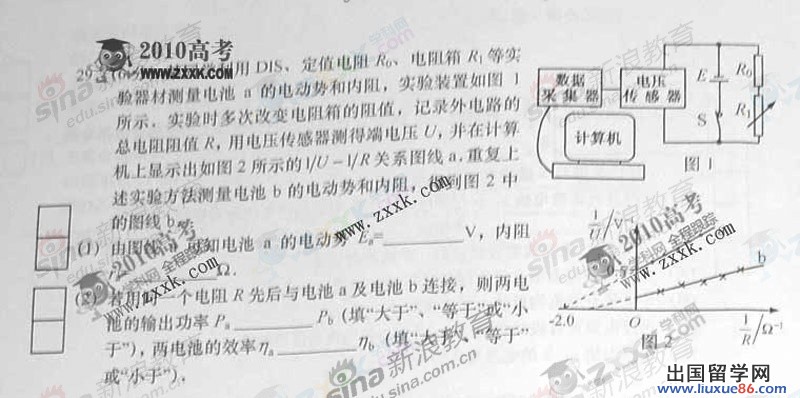 2010高考
www.zxxk.com
29. 用DIS、定值电阻 R₀、电阻箱 R₁等实
验器材测量电池 a 的电动势和内阻,实验装置如图 1
所示.实验时多次改变电阻箱的阻值,记录外电路的
总电阻阻值 R,用电压传感器测得端电压 U,并在计算
机上显示出如图 2 所示的 1/U－1/R 关系图线 a.重复上
述实验方法测量电池 b 的电动势和内阻, 到图 2 中
的图线 b.
(1) 由图线 可知电池 a 的电动势 Eₐ=________V,内阻
________Ω.
(2) 用 一个电阻 R 先后与电池 a 及电池 b 连接,则两电
池的输出功率 Pₐ________P_b (填“大于”、“等于”或“小
于”),两电池的效率 ηₐ________η_b (填“大于”、“等于”
或“小于”).
数据
采集器
电压
传感器
E
R₀
R₁
S
计算机
图 1
1/U/V⁻¹
b
-2.0
O
1/R/Ω⁻¹
图 2
www.zxxk.com
2010高考
学科网 全程跟踪
www.zxxk.com
2010高考
学科网 全程跟踪
www.zxxk.com
sina新浪教育
edu.sina.com.cn
出国留学网
www.liuxue86.com